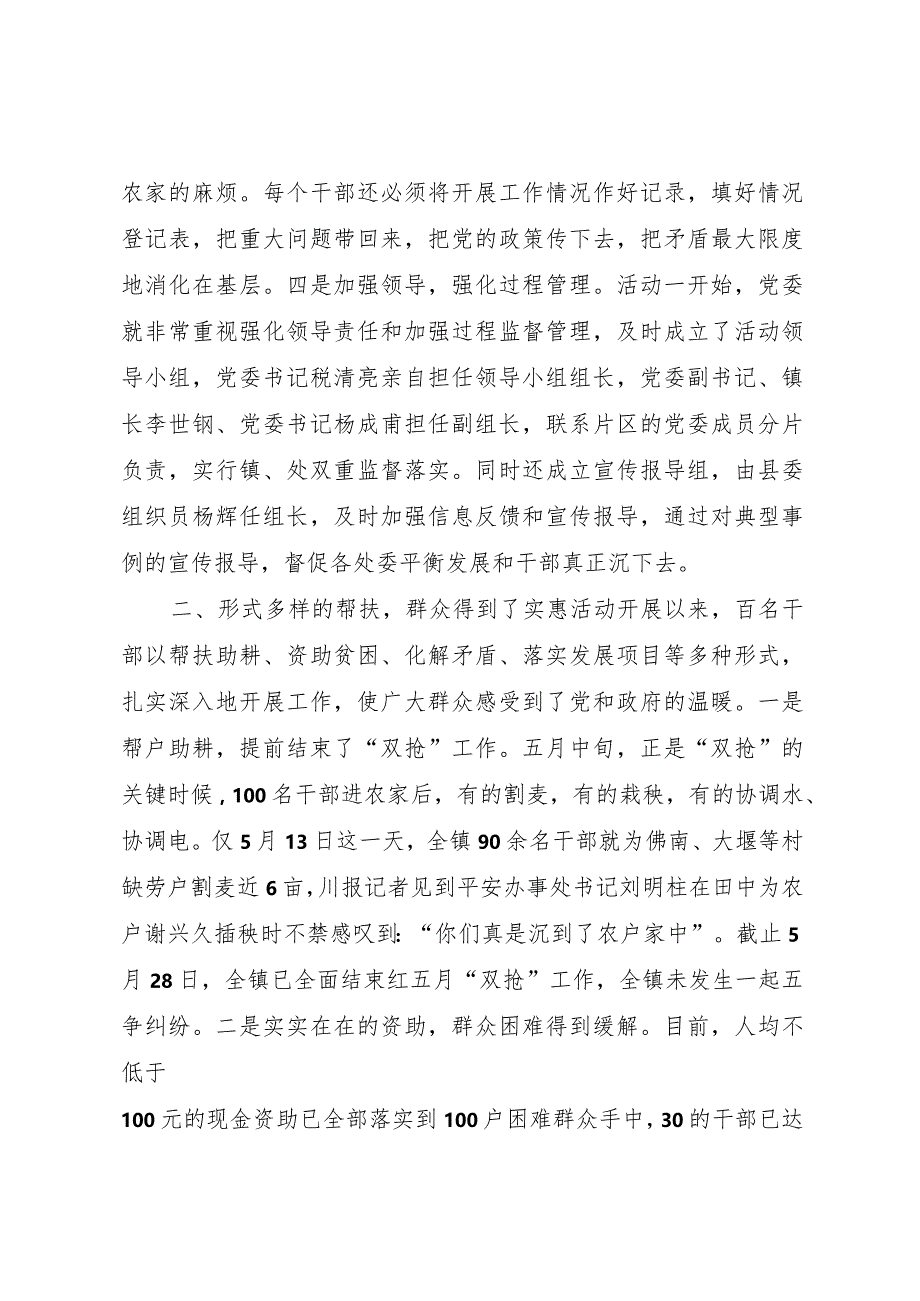 农家的麻烦。每个干部还必须将开展工作情况作好记录，填好情况
登记表，把重大问题带回来，把党的政策传下去，把矛盾最大限度
地消化在基层。四是加强领导，强化过程管理。活动一开始，党委
就非常重视强化领导责任和加强过程监督管理，及时成立了活动领
导小组，党委书记税清亮亲自担任领导小组组长，党委副书记、镇
长李世钢、党委书记杨成甫担任副组长，联系片区的党委成员分片
负责，实行镇、处双重监督落实。同时还成立宣传报导组，由县委
组织员杨辉任组长，及时加强信息反馈和宣传报导，通过对典型事
例的宣传报导，督促各处委平衡发展和干部真正沉下去。
二、形式多样的帮扶，群众得到了实惠活动开展以来，百名干
部以帮扶助耕、资助贫困、化解矛盾、落实发展项目等多种形式，
扎实深入地开展工作，使广大群众感受到了党和政府的温暖。一是
帮户助耕，提前结束了“双抢”工作。五月中旬，正是“双抢”的
关键时候，100 名干部进农家后，有的割麦，有的栽秧，有的协调水、
协调电。仅 5 月 13 日这一天，全镇 90 余名干部就为佛南、大堰等村
缺劳户割麦近 6 亩，川报记者见到平安办事处书记刘明柱在田中为农
户谢兴久插秧时不禁感叹到：“你们真是沉到了农户家中”。截止 5
月 28 日，全镇已全面结束红五月“双抢”工作，全镇未发生一起五
争纠纷。二是实实在在的资助，群众困难得到缓解。目前，人均不
低于
100 元的现金资助已全部落实到 100 户困难群众手中，30 的干部已达